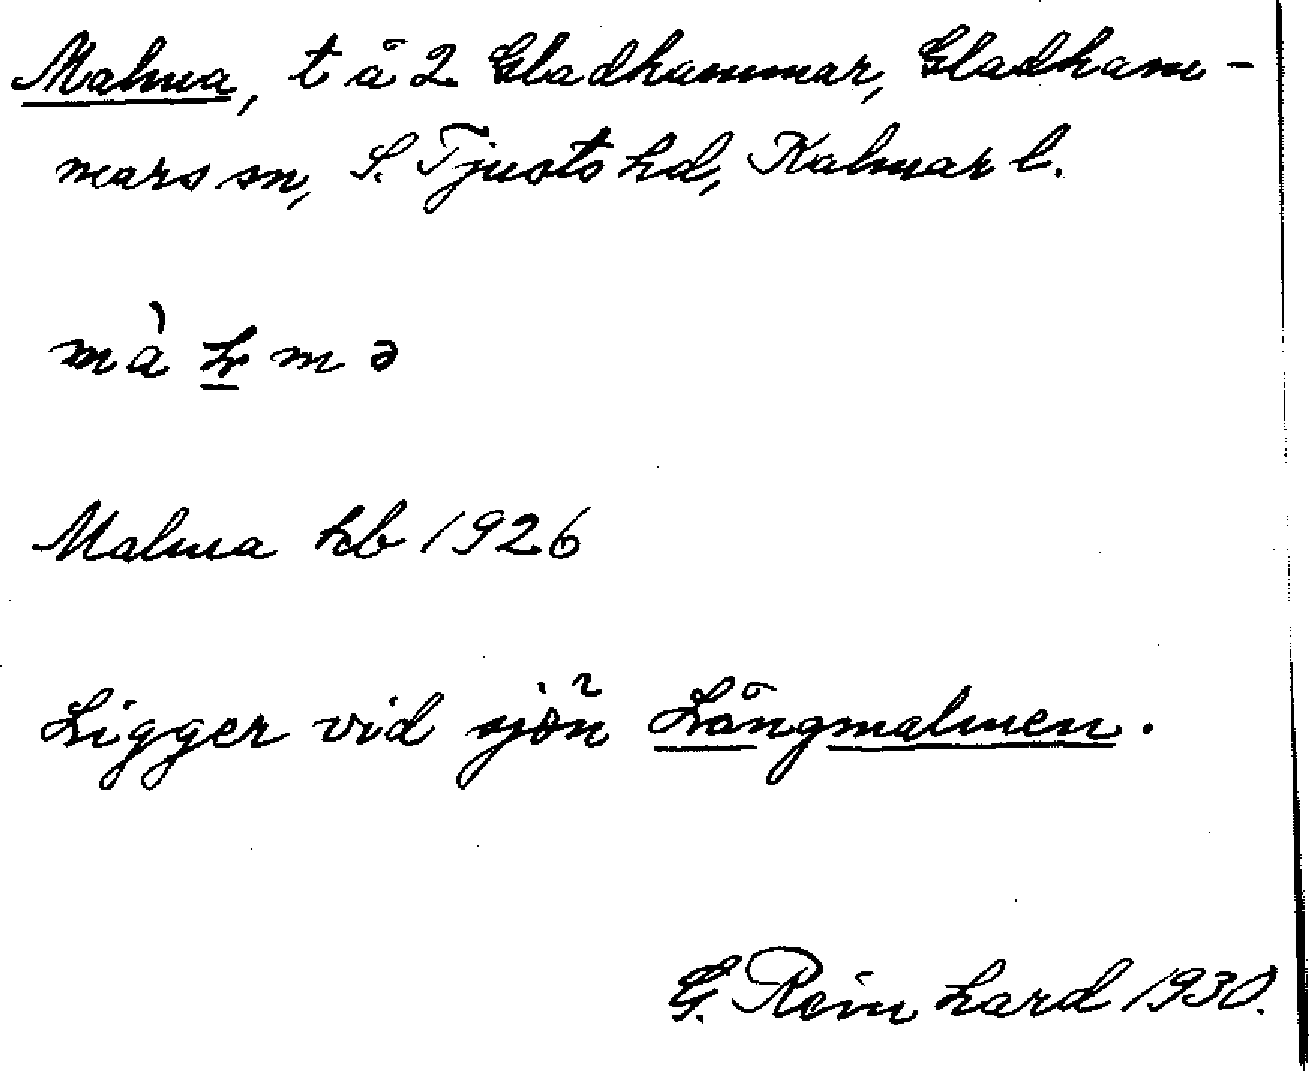 Malma, t å 2 Gladhammar, Gladham-
mars sn, S. Tjusts hd, Kalmar l.
mà m ə
Malma kb 1926
Ligger vid sjön Långmalmen.
G. Reinhard 1930.